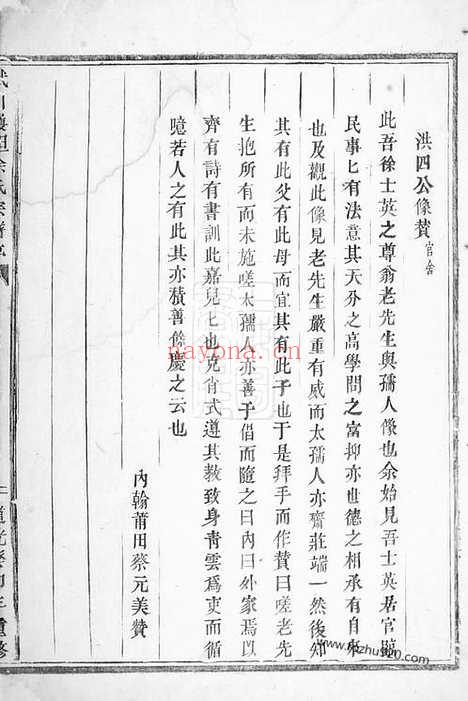 洪四公像贊 官舍
此吾徐士英之尊翁老先生與孺人像也余始見吾士英居官臨
民事匕有法意其天分之高學問之富抑亦世德之相承有自來
也及觀此像見老先生嚴重有威而太孺人亦齋莊端一然後知
其有此父有此母而宜其有此子也于是拜手而作贊曰嗟老先
生抱所有而未施嗟太孺人亦善于倡而隨之曰內曰外家焉以
齊有詩有書訓此嘉兒匕也克肖式遵其教致身青雲為吏而循
噫若人之有此其亦積善餘慶之云也
內翰莆田蔡元美贊
道光
重修
nayona.cn